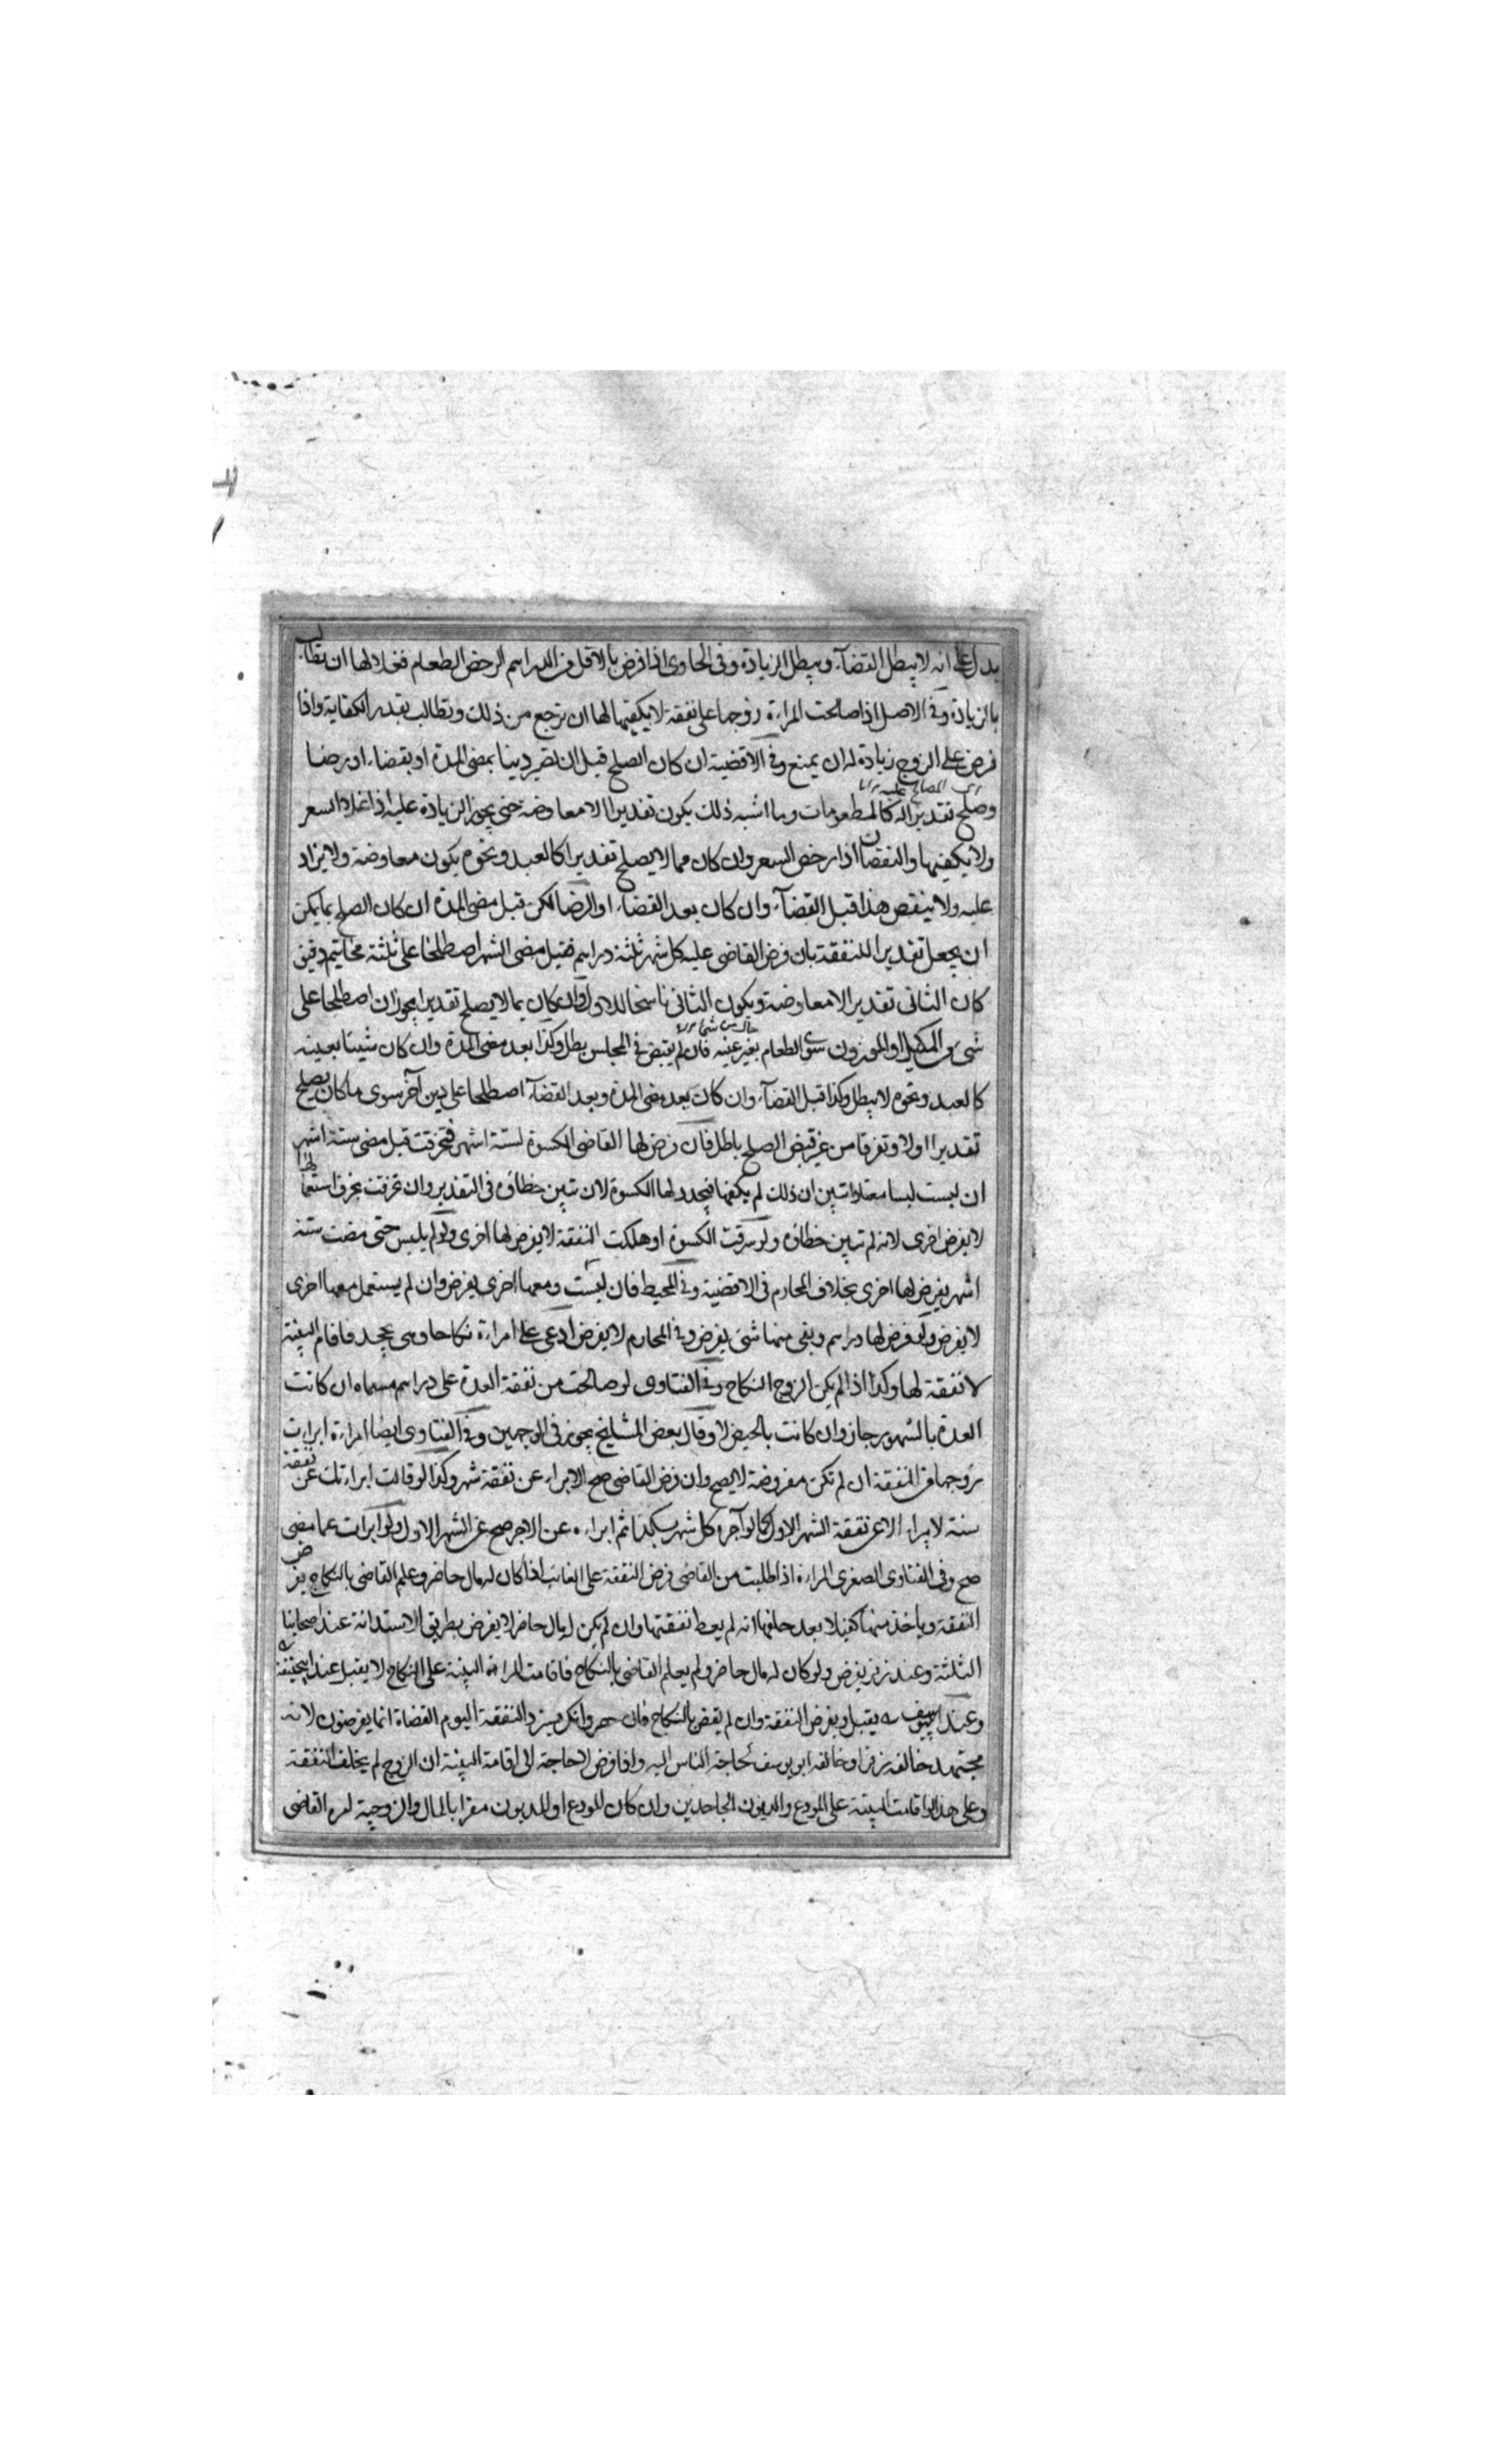 يدل على انه لا يبطل القضآء ويبطل الزيادة وفى الحاوى اذا فرض بالاقل من الدراهم لرخص الطعام فغلا لها ان تطالب
بالزيادة وفى الاصل اذا صالحت المراءة زوجها على نفقة لا يكفيها لها ان ترجع من ذلك وتطالب بقدر الكفاية واذا
فرض على الزوج زيادة له ان يمنع وفى الاقضية ان كان الصلح قبل ان تصير دينا بمضى المدة او بقضاء او رضا
المصالح عليه
وصلح تقديرا له كالمطعومات وما اشبه ذلك يكون تقديرا لا معاوضة حتى يجوز الزيادة عليه اذا غلا السعر
ولا يكفيها والنقصان اذا رخص السعر وان كان مما لا يصلح تقديرا كالعبد ونحوه يكون معاوضة ولا يزاد
عليه ولا ينقص هذا قبل القضآء وان كان بعد القضاء او الرضا لكن قبل مضى المدة ان كان الصلح بما يمكن
ان يجعل تقديرا للنفقة بان فرض القاضى عليه كل شهر ثلثة دراهم فقبل مضى الشهر اصطلحا على ثلثة مخاتيم دقيق
كان الثانى تقديرا لا معاوضة ويكون الثانى ناسخا للاول وان كان بما لا يصلح تقديرا يجوز ان اصطلحا على
شىء من المكيل او الموزون سوى الطعام بغير عينه فان لم يقبض فى المجلس بطل وكذا بعد مضى المدة وان كان شيئا بعينه
كالعبد ونحوه لا يبطل وكذا قبل القضآء وان كان بعد مضى المدة وبعد القضآء اصطلحا على دين آخر سوى ما كان يصلح
تقديرا اولا وتفرقا من غير قبض الصلح باطل فان فرض لها القاضى الكسوة لستة اشهر فتخرقت قبل مضى ستة اشهر
ان لبست لبسا معتادا تبين ان ذلك لم يكفها فيجدد لها الكسوة لان تبين خطاؤه فى التقدير وان تخرقت بخرق استعمالها
لا يفرض اخرى لانه لم تبين خطاؤه ولو سرقت الكسوة او هلكت النفقة لا يفرض لها اخرى ولو لم يلبس حتى مضت ستة
اشهر يفرض لها اخرى بخلاف المحارم فى الاقضية وفى المحيط فان لبست ومعها اخرى يفرض وان لم يستعمل معها اخرى
لا يفرض ولو فرض لها دراهم وبقى منها شىء يفرض وفى المحارم لا يفرض ادعى على امراءة نكاحا وهى يجحد فاقام البينة
لا نفقة لها وكذا اذا لم يكن الزوج النكاح وفى الفتاوى لو صالحت من نفقة العدة على دراهم مسماه ان كانت
العدة بالشهور جاز وان كانت بالحيض لا وقال بعض المشايخ يجوز فى الوجهين وفى الفتاوى ايضا امراءة ابراءت
زوجها من النفقة ان لم تكن مفروضة لا يصح وان فرض القاضى صح الابراء عن نفقة شهر وكذا لو قالت ابراءتك عن نفقة
سنة لا يبراء الا عن نفقة الشهر الاول كما لو آجره كل شهر بكذا ثم ابراءه عن الاجر صح عن الشهر الاول ولو ابرات عما مضى
صح وفى الفتاوى الصغرى المراءة اذا طلبت من القاضى فرض النفقة على الغائب اذا كان له مال حاضر وعلم القاضى بالنكاح يفرض
النفقة وياخذ منها كفيلا بعد حلفها انه لم يعط نفقتها وان لم يكن له مال حاضر لا يفرض بطريق الاستدانة عند اصحابنا
الثلثة وعند زفر يفرض ولو كان له مال حاضر ولم يعلم القاضى بالنكاح فاقامت المراءة البينة على النكاح لا يقبل عند ابيحنيفة
وعند ابييوسف يقبل ويفرض النفقة وان لم يقض بالنكاح فان حضر وانكر يسترد النفقة اليوم القضاة انما يفرضون لانه
مجتهد خالفه زفر او خالفه ابو يوسف لحاجة الناس اليه واذا فرض لا حاجة الى اقامة البينة ان الزوج لم يخلف النفقة
وعلى هذا لو اقامت البينة على المودع والمديون الجاحدين وان كان المودع او المديون مقرا بالمال والزوجية امره القاضى